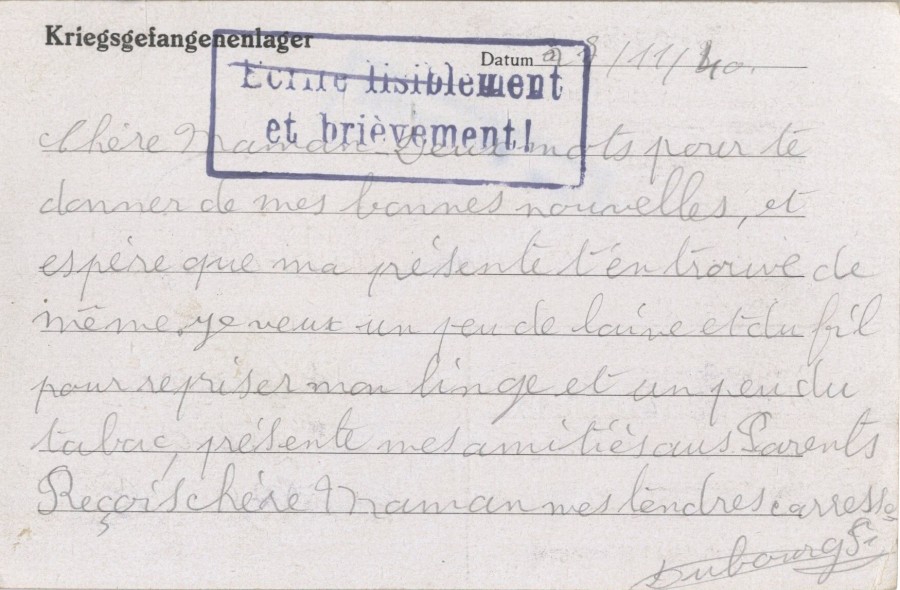 Kriegsgefangenenlager
Datum 28/11/40.
Ecrire lisiblement
et brièvement!
Chère Maman Deux mots pour te
donner de mes bonnes nouvelles, et
espère que ma présente t'en trouve de
même, je veux un peu de laine et du fil
pour repriser mon linge et un peu du
tabac, présente mes amitiés aus Parents
Reçois chére Maman mes tendres carresse
Dubourg